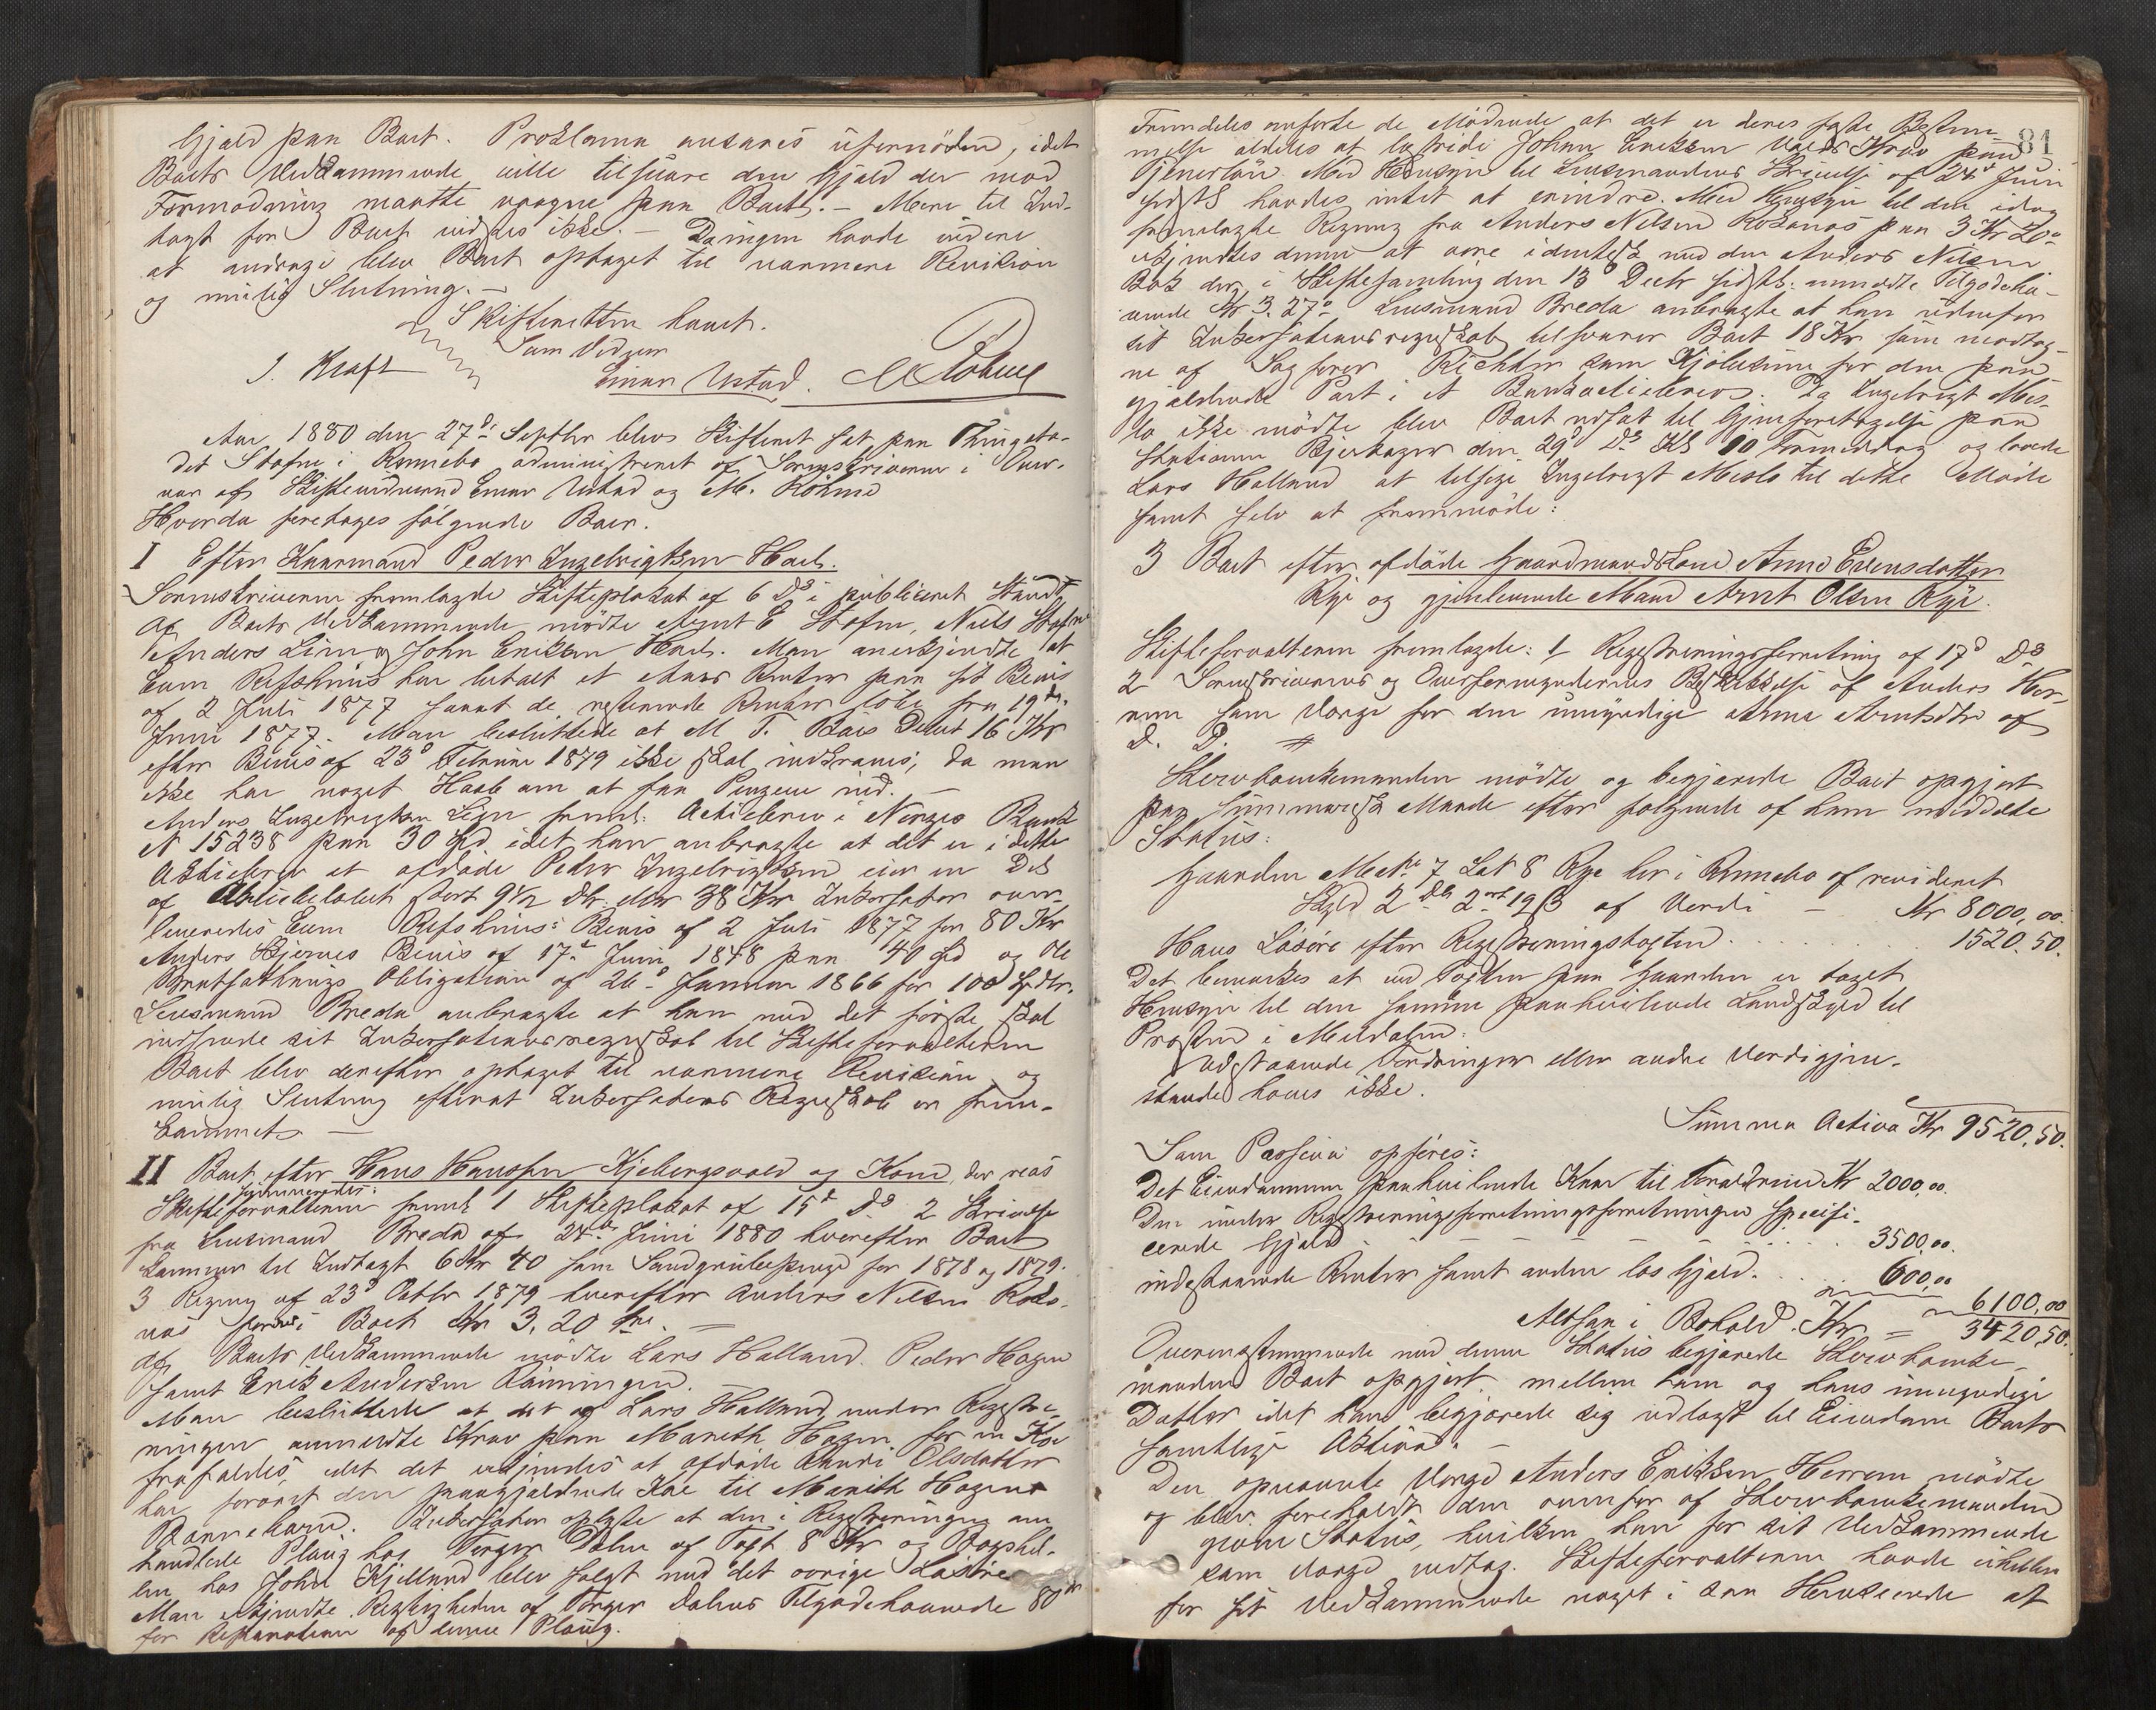 Gjæld paa Boet. Proklama ansaaes ufornöden, idet
Boets Vedkommende ville tilsvare den Gjæld der mod
Formodning maatte vrogne paa Boet. – Mere til Ind-
tægt for Boet vidstes ikke. – Da ingen havde videre
at andrage blev Boet optaget til nærmere Revision
og mulig Slutning. –
Skifteretten hævet.
Som Vidner
J. Kraft
Einar Ustad. M Röhme
Aar 1880 den 27de Septbr blev Skifteret sat paa Thingste-
det Stofne i Rennebo administreret af Sorenskriveren i Over-
vær af Skiftevidnerne Einar Ustad og M. Röhme
Hvorda foretoges fölgende Boer.
I Efter Kaarmand Peder Ingebrigtsen Hæl.
Sorenskriveren fremlagde Skifteplakat af 6 Ds i publiceret Stand.
Af Boets Vedkommende mödte Arnt E Stofne, Niels Stofne
Anders Lien og John Eriksen Hæl. Man anerkjendte at
Even Refshus har betalt et Aars Renter paa sit Bevis
af 2 Juli 1877 samt de resterende Renter löbe fra 19de
Juni 1877. Man besluttede at M T. Bös Debet 16 Kr
efter Bevis af 23d Februar 1879 ikke skal indkræves, da man
ikke har noget Haab om at faa Pengene ind. –
Anders Ingebrigtsen Lien freml: Actiebrev i Norges Bank
N 15238 paa 30 Spd idet han anbragte at det er i dette
Aktiebrev at afdöde Peder Ingebrigtsen eier en Del
af Aktiebelöbet stort 9½ Dlr. eller 38 Kr. Inkassator over-
leveredes Even Refshus: Bevis af 2 Juli 1877 for 80 Kr
Anders Bjernes Bevis af 17de Juni 1848 paa 40 Spd og Ole
Bratsethaugs Obligation af 26d Januar 1866 for 100 Spdlr.
Lensmand Breda anbragte at han med det förste skal
indsende sit Inkassationsregnskab til Skifteforvalteren
Boet blev derefter optaget til nærmere Revision og
mulig Slutning efterat Inkassators Regnskab er frem-
kommet. –
II Boet efter Hans Hansen Kjebergsvold og Kone, der reas
sumeredes:
Skifteforvalteren freml 1 Skifteplakat af 15d Ds 2 Skrivelse
fra Lensmand Breda af 24de Juni 1880 hvorefter Boet
kommer til Indtægt 6 Kr 40 som Sandgrubepenge for 1878 og 1879.
3 Regning af 23d Octbr 1879 hvorefter Anders Nelsen Roks-
nös fordrer i Boet Kr 3.20 Öre. –
Af Boets Vedkommende mödte Lars Halland. Peder Hagen
samt Erik Andersen Rönningen.
Man besluttede at det af Lars Halland under Registre-
ringen anmeldte Krav paa Mareth Hagen for en Ko
frafaldes, idet det erkjendes at afdöde Randi Olsdatter
har foræret den paagjældende Ko til Marith Hagens
Barnebarn. Inkassator oplyste at den i Registreringen om
handlede Ploug hos Torger Dolen af Takst 8 Kr og Bogskab-
en hos John Kjelland blev solgt med det övrige Lösöre
Man erkjendte Rigtigheden af Torger Dolens Tilgodehavende 80 Öre
for Reparation af denne Ploug.
81
Fremdeles anförte de Mödende at det er deres faste Bestem-
melse aldeles at bestride Johan Eriksen Volds Krav paa
Tjenerlön. Med Hensyn til Lensmandens Skrivelse af 24d Juni
sidstl havdes intet at erindre. Med Hensyn til den idag
fremlagte Regning fra Anders Nilsen Roksnös paa 3 Kr 20
erkjendtes denne at være identisk med den Anders Nilsen
Bak der i Skiftesamling den 13d Decbr sidstl. anmeldte Tilgodeha-
vende Kr 3.27. Lensmand Breda anbragte at han udenfor
sit Inkassationsregnskab tilsvarer Boet 18 Kr som modtag-
ne af Sagförer Richter som Kjöbesum for den paa-
gjældende Part i et Bankactiebrev. Da Ingebrigt Mes-
lo ikke mödte blev Boet udsat til Gjenforetagelse paa
Stationen Bjerkager den 29d Ds Kl 10 Formiddag og lovede
Lars Halland at tilsige Ingebrigt Meslo til dette Möde
samt selv at fremmöde:
3 Boet efter afdöde Gaardmandskone Anne Evensdatter
Rye og gjenlevende Mand Arnt Olsen Rye.
Skifteforvalteren fremlagde: 1/ Registreringsforretning af 17d Ds
2 Sorenskriverens og Overformynderens Beskikkelse af Anders Her-
rem som Værge for den umyndige Anna Arntsdtr af
D. D.
Stervboenkemanden mödte og begjærede Boet opgjort
paa summarisk Maade efter fölgende af ham meddelte
Status:
Gaarden Matr 7 Löb 8 Rye her i Rennebo af revideret
Skyld 2 Dlr 2 ort 19 β af Værdi – Kr 8000,00.
Hans Lösöre efter Registreringstaxten . . . . . . 1520.50.
Det bemærkes at ved Taxten paa Gaarden er taget
Hensyn til den samme paahvilende Landskyld til
Prosten i Meldalen.
Udestaaende Fordringer eller andre Værdigjen-
stande haves ikke.
Summa Activa Kr 9520.50.
Som Passiva opföres:
Det Eiendommen paahvilende Kaar til Forældrene Kr 2000,00.
Den under Registreringsforretningsforretningen specifi-
cerede Gjæld . – – – – – . . . . 3500,00.
indestaaende Renter samt anden lös Gjæld. . . . 600,00
6100,00
Altsaa i Behold. Kr = 3420,50.
Overensstemmende med denne Status begjærede Stervboenke-
manden Boet opgjort mellem ham og hans umyndige
Datter idet han begjærede sig udlagt til Eiendom Boets
samtlige Aktiva. –
Den opnævnte Værge Anders Eriksen Herrem mödte
og blev foreholdt den ovenfor af Stervboenkemanden
givne Status, hvilken han for sit Vedkommende
som Værge vedtog. Skifteforvalteren havde eiheller
for sit Vedkommende noget i saa Henseende at